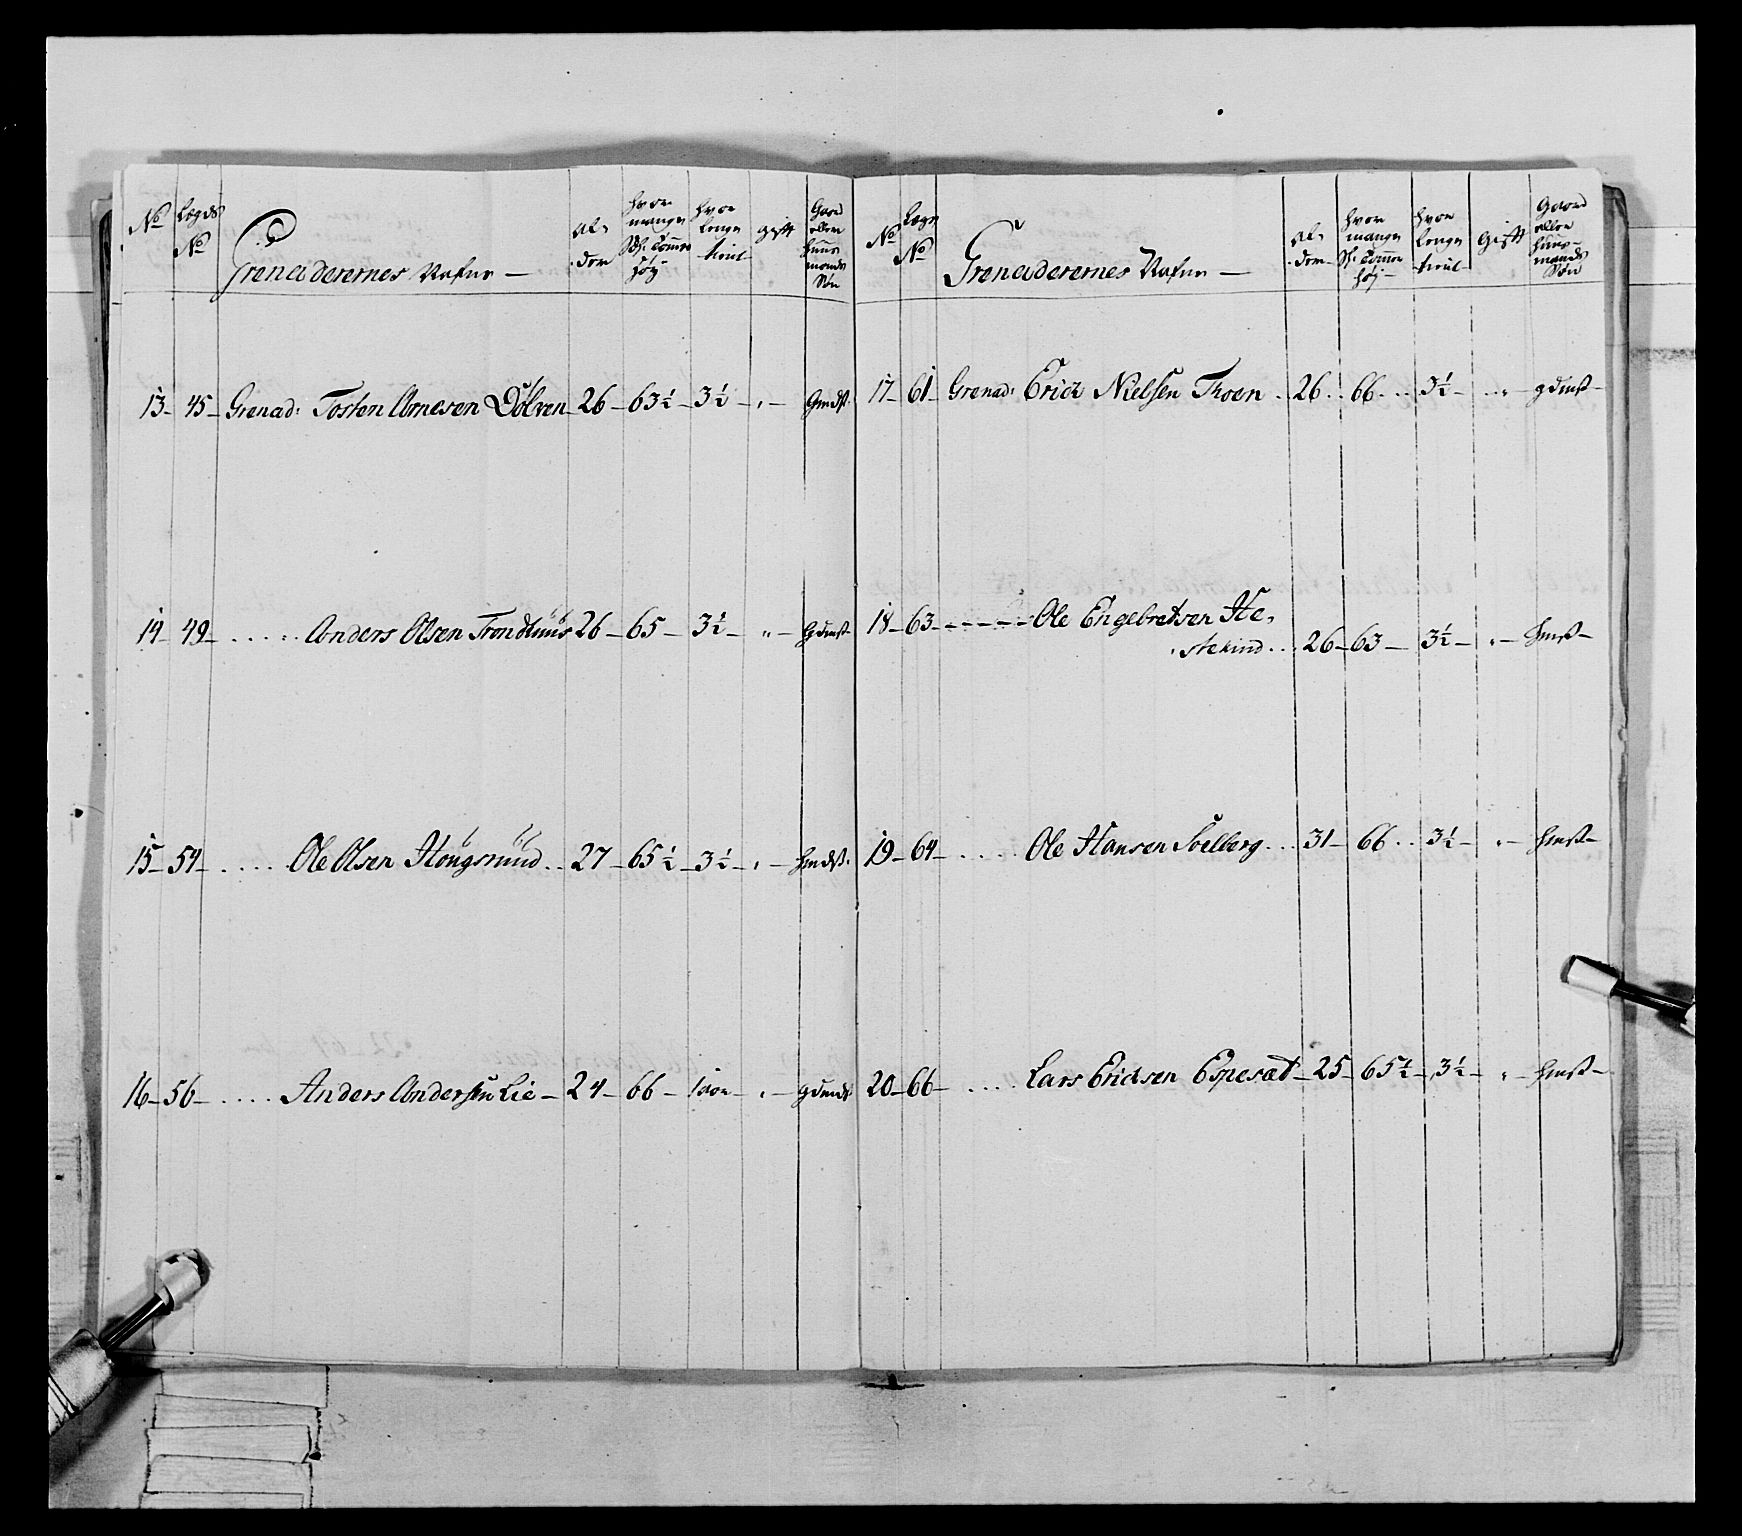 No Lægds No Grenaderernes Nafne — Al-der hvor mange Sch: Tomme høy hvor lenge tient gift Gaard eller Huus mands Søn
13 — 45 — Grenad: Tosten Arnesen Dölven — 26 — 63½ — 3½ — " — Gmdst.
14 — 49 — . . . . . . Anders Olsen Trondhuus 26 — 65 — 3½ — " — gdmst
15 — 54 — . . . . . Ole Olsen Hougsrüüd . . 27 — 65½ — 3½ — " — hmdst.
16 — 56 — . . . . . Anders Andersen Lie — 24 — 66 — 1 aar — " — gdmds
No Lægs No Grenaderernes Nafne — Al-der hvor mange Sch: Tomme høj hvor lenge tient gift Gaard eller Huus-mands Søn
17 — 61 — Grenad: Erich Nielsen Thoen . . 26 . . 66 . . . 3½ — . . " — gdmst —
18 — 63 — — — — Ole Engebretsen He-
stekind . . . 26 — 63 — 3½ — " — hmst —
19 — 64 — . . . . . Ole Hansen Soelberg . . . 31 — 66 . . 3½ — " — hmst —
20 — 66 — . . . . Lars Ericksen Espesæt — 25 — 65½ — 3½ — " — hmst —